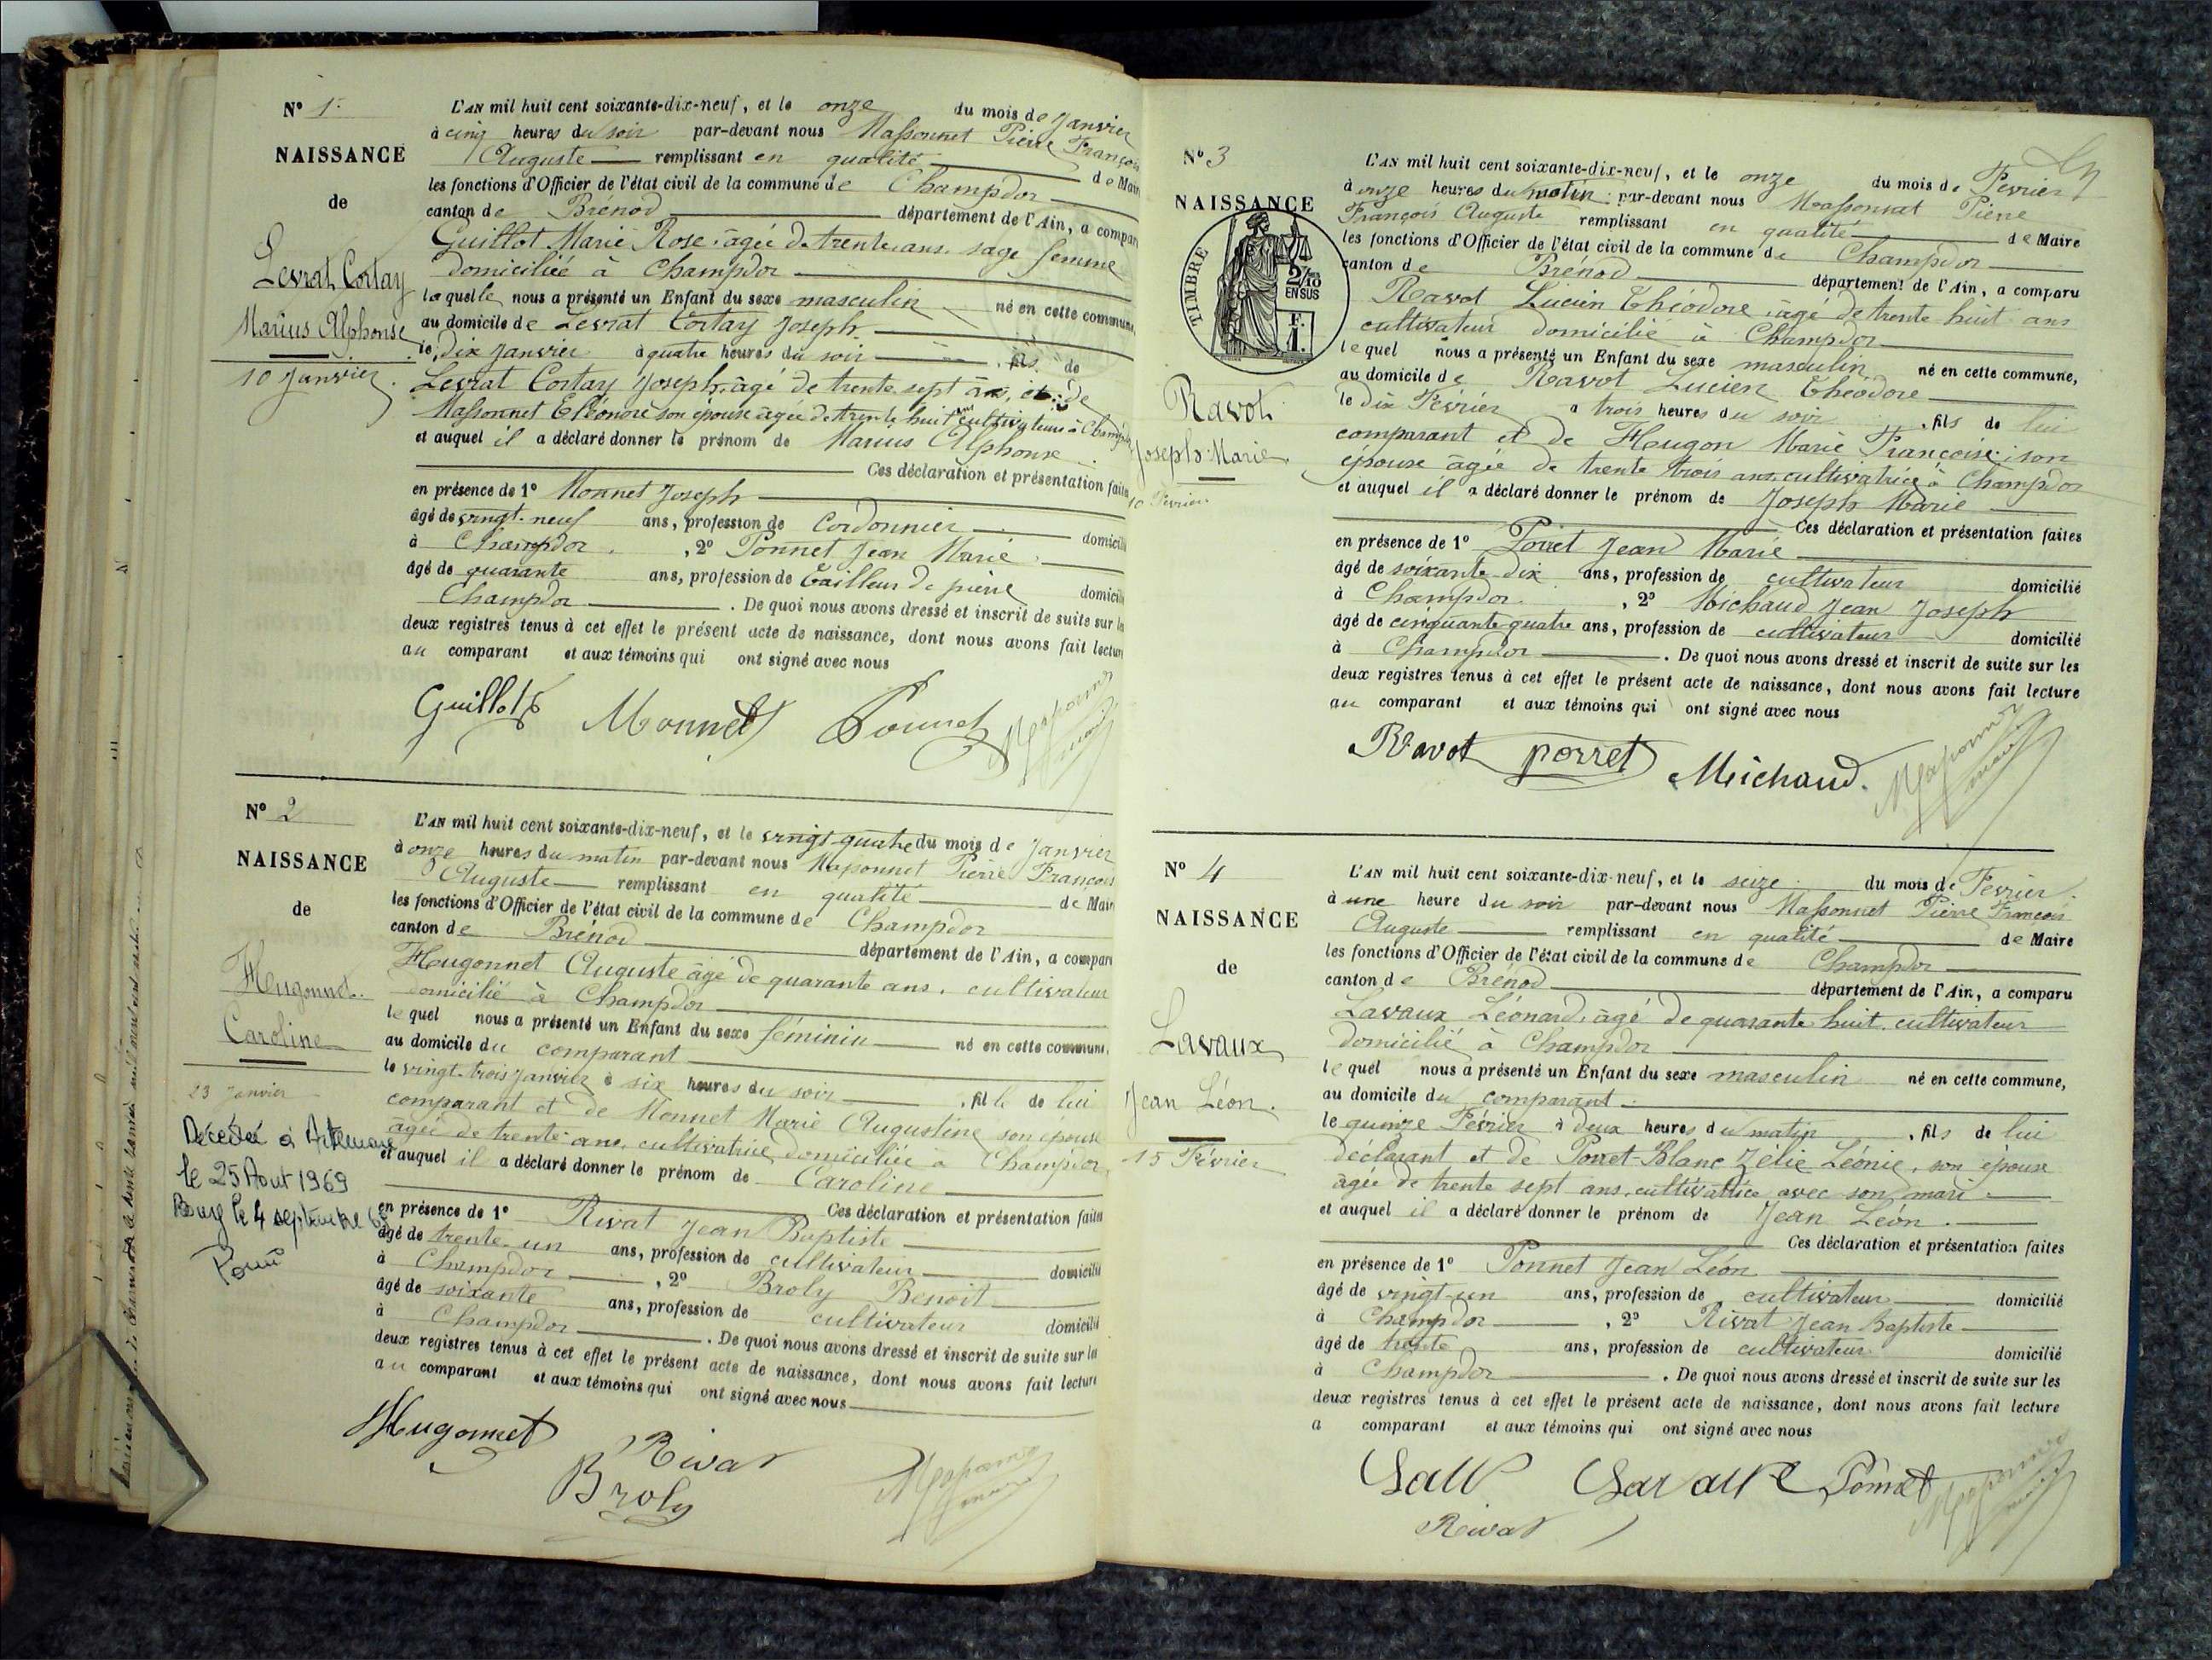 N° 1.
NAISSANCE
de
Levrat Cortay
Marius Alphonse
10 Janvier.
L'AN mil huit cent soixante-dix-neuf, et le onze du mois de Janvier
à cinq heures du soir par-devant nous Massonnet Pierre François
Auguste remplissant en qualité de Maire
les fonctions d'Officier de l'état civil de la commune de Champdor
canton de Brénod département de l'Ain, a comparu
Guillot Marie Rose, âgée de trente ans, sage femme
domiciliée à Champdor
laquelle nous a présenté un Enfant du sexe masculin né en cette commune,
au domicile de Levrat Cortay Joseph
le dix Janvier à quatre heures du soir, fils de
Levrat Cortay Joseph, âgé de trente sept ans, et de
Massonnet Eléonore son épouse âgée de trente huit ans cultivateurs à Champdor
et auquel il a déclaré donner le prénom de Marius Alphonse
Ces déclaration et présentation faites
en présence de 1° Monnet Joseph
âgé de vingt-neuf ans, profession de Cordonnier domicilié
à Champdor, 2° Ponnet Jean Marie
âgé de quarante ans, profession de tailleur de pierre domicilié
Champdor. De quoi nous avons dressé et inscrit de suite sur les
deux registres tenus à cet effet le présent acte de naissance, dont nous avons fait lecture
au comparant et aux témoins qui ont signé avec nous
Guillot Monnet Ponnet
N° 2
NAISSANCE
de
Hugonnet.
Caroline
23 Janvier
Décédée à Artemare
le 25 Aout 1969
Bourg le 4 septembre 69
L'AN mil huit cent soixante-dix-neuf, et le vingt-quatre du mois de Janvier
à onze heures du matin par-devant nous Massonnet Pierre François
Auguste remplissant en qualité de Maire
les fonctions d'Officier de l'état civil de la commune de Champdor
canton de Brénod département de l'Ain, a comparu
Hugonnet Auguste âgé de quarante ans, cultivateur
domicilié à Champdor
lequel nous a présenté un Enfant du sexe féminin né en cette commune,
au domicile du comparant
le vingt-trois Janvier à six heures du soir, fille de lui
comparant et de Monnet Marie Augustine son épouse
âgée de trente ans, cultivatrice domiciliée à Champdor
et auquel il a déclaré donner le prénom de Caroline
Ces déclaration et présentation faites
en présence de 1° Rivat Jean Baptiste
âgé de trente-un ans, profession de cultivateur domicilié
à Champdor, 2° Broly Benoit
âgé de soixante ans, profession de cultivateur domicilié
à Champdor. De quoi nous avons dressé et inscrit de suite sur les
deux registres tenus à cet effet le présent acte de naissance, dont nous avons fait lecture
au comparant et aux témoins qui ont signé avec nous
Hugonnet Rivat
Broly
N° 3
NAISSANCE
TIMBRE
2/10
EN SUS
F.
1.
Ravot
Joseph-Marie
10 Février
L'AN mil huit cent soixante-dix-neuf, et le onze du mois de Février
à onze heures du matin par-devant nous Massonnat Pierre
François Auguste remplissant en qualité de Maire
les fonctions d'Officier de l'état civil de la commune de Champdor
canton de Brénod département de l'Ain, a comparu
Ravot Lucien Théodore, âgé de trente huit ans
cultivateur domicilié à Champdor
lequel nous a présenté un Enfant du sexe masculin né en cette commune,
au domicile de Ravot Lucien Théodore
le dix Février à trois heures du soir, fils de lui
comparant et de Hugon Marie Françoise, son
épouse âgée de trente trois ans, cultivatrice à Champdor
et auquel il a déclaré donner le prénom de Joseph Marie
Ces déclaration et présentation faites
en présence de 1° Porret Jean Marie
âgé de soixante-dix ans, profession de cultivateur domicilié
à Champdor, 2° Michaud Jean Joseph
âgé de cinquante quatre ans, profession de cultivateur domicilié
à Champdor. De quoi nous avons dressé et inscrit de suite sur les
deux registres tenus à cet effet le présent acte de naissance, dont nous avons fait lecture
au comparant et aux témoins qui ont signé avec nous
Ravot porret Michaud.
N° 4
NAISSANCE
de
Lavaux
Jean Léon.
15 Février
L'AN mil huit cent soixante-dix-neuf, et le seize du mois de Février
à une heure du soir par-devant nous Massonnet Pierre François
Auguste remplissant en qualité de Maire
les fonctions d'Officier de l'état civil de la commune de Champdor
canton de Brénod département de l'Ain, a comparu
Lavaux Léonard, âgé de quarante huit, cultivateur
domicilié à Champdor
lequel nous a présenté un Enfant du sexe masculin né en cette commune,
au domicile du comparant
le quinze Février à deux heures du matin, fils de lui
déclarant et de Porret-Blanc Zélie Léonie, son épouse
âgée de trente sept ans, cultivatrice avec son mari
et auquel il a déclaré donner le prénom de Jean Léon.
Ces déclaration et présentation faites
en présence de 1° Ponnet Jean Léon
âgé de vingt-un ans, profession de cultivateur domicilié
à Champdor, 2° Rivat Jean Baptiste
âgé de trente ans, profession de cultivateur domicilié
à Champdor. De quoi nous avons dressé et inscrit de suite sur les
deux registres tenus à cet effet le présent acte de naissance, dont nous avons fait lecture
a comparant et aux témoins qui ont signé avec nous
Ponnet
Rivat